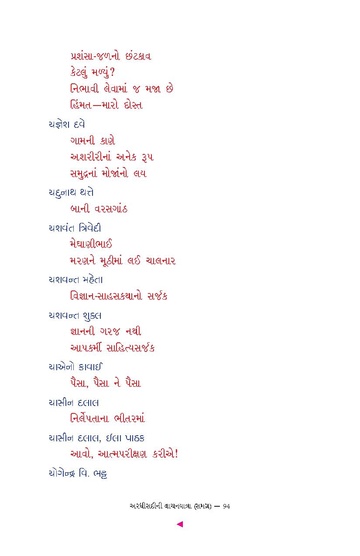 પ્રશંસા-જળનો છંટકાવ
કેટલું મળ્યું?
નિભાવી લેવામાં જ મજા છે
હિંમત—મારો દોસ્ત
યજ્ઞેશ દવે
ગામની કાણે
અશરીરીનાં અનેક રૂપ
સમુદ્રનાં મોજાંનો લય
યદુનાથ થત્તે
બાની વરસગાંઠ
યશવંત ત્રિવેદી
મેઘાણીભાઈ
મરણને મૂઠીમાં લઈ ચાલનાર
યશવન્ત મહેતા
વિજ્ઞાન-સાહસકથાનો સર્જક
યશવન્ત શુક્લ
જ્ઞાનની ગરજ નથી
આપકર્મી સાહિત્યસર્જક
યાએનો કાવાઈ
પૈસા, પૈસા ને પૈસા
યાસીન દલાલ
નિર્લેપતાના ભીતરમાં
યાસીન દલાલ, ઈલા પાઠક
આવો, આત્મપરીક્ષણ કરીએ!
યોગેન્દ્ર વિ. ભટ્ટ
અરધીસદીની વાચનયાત્રા (સમગ્ર) — 94